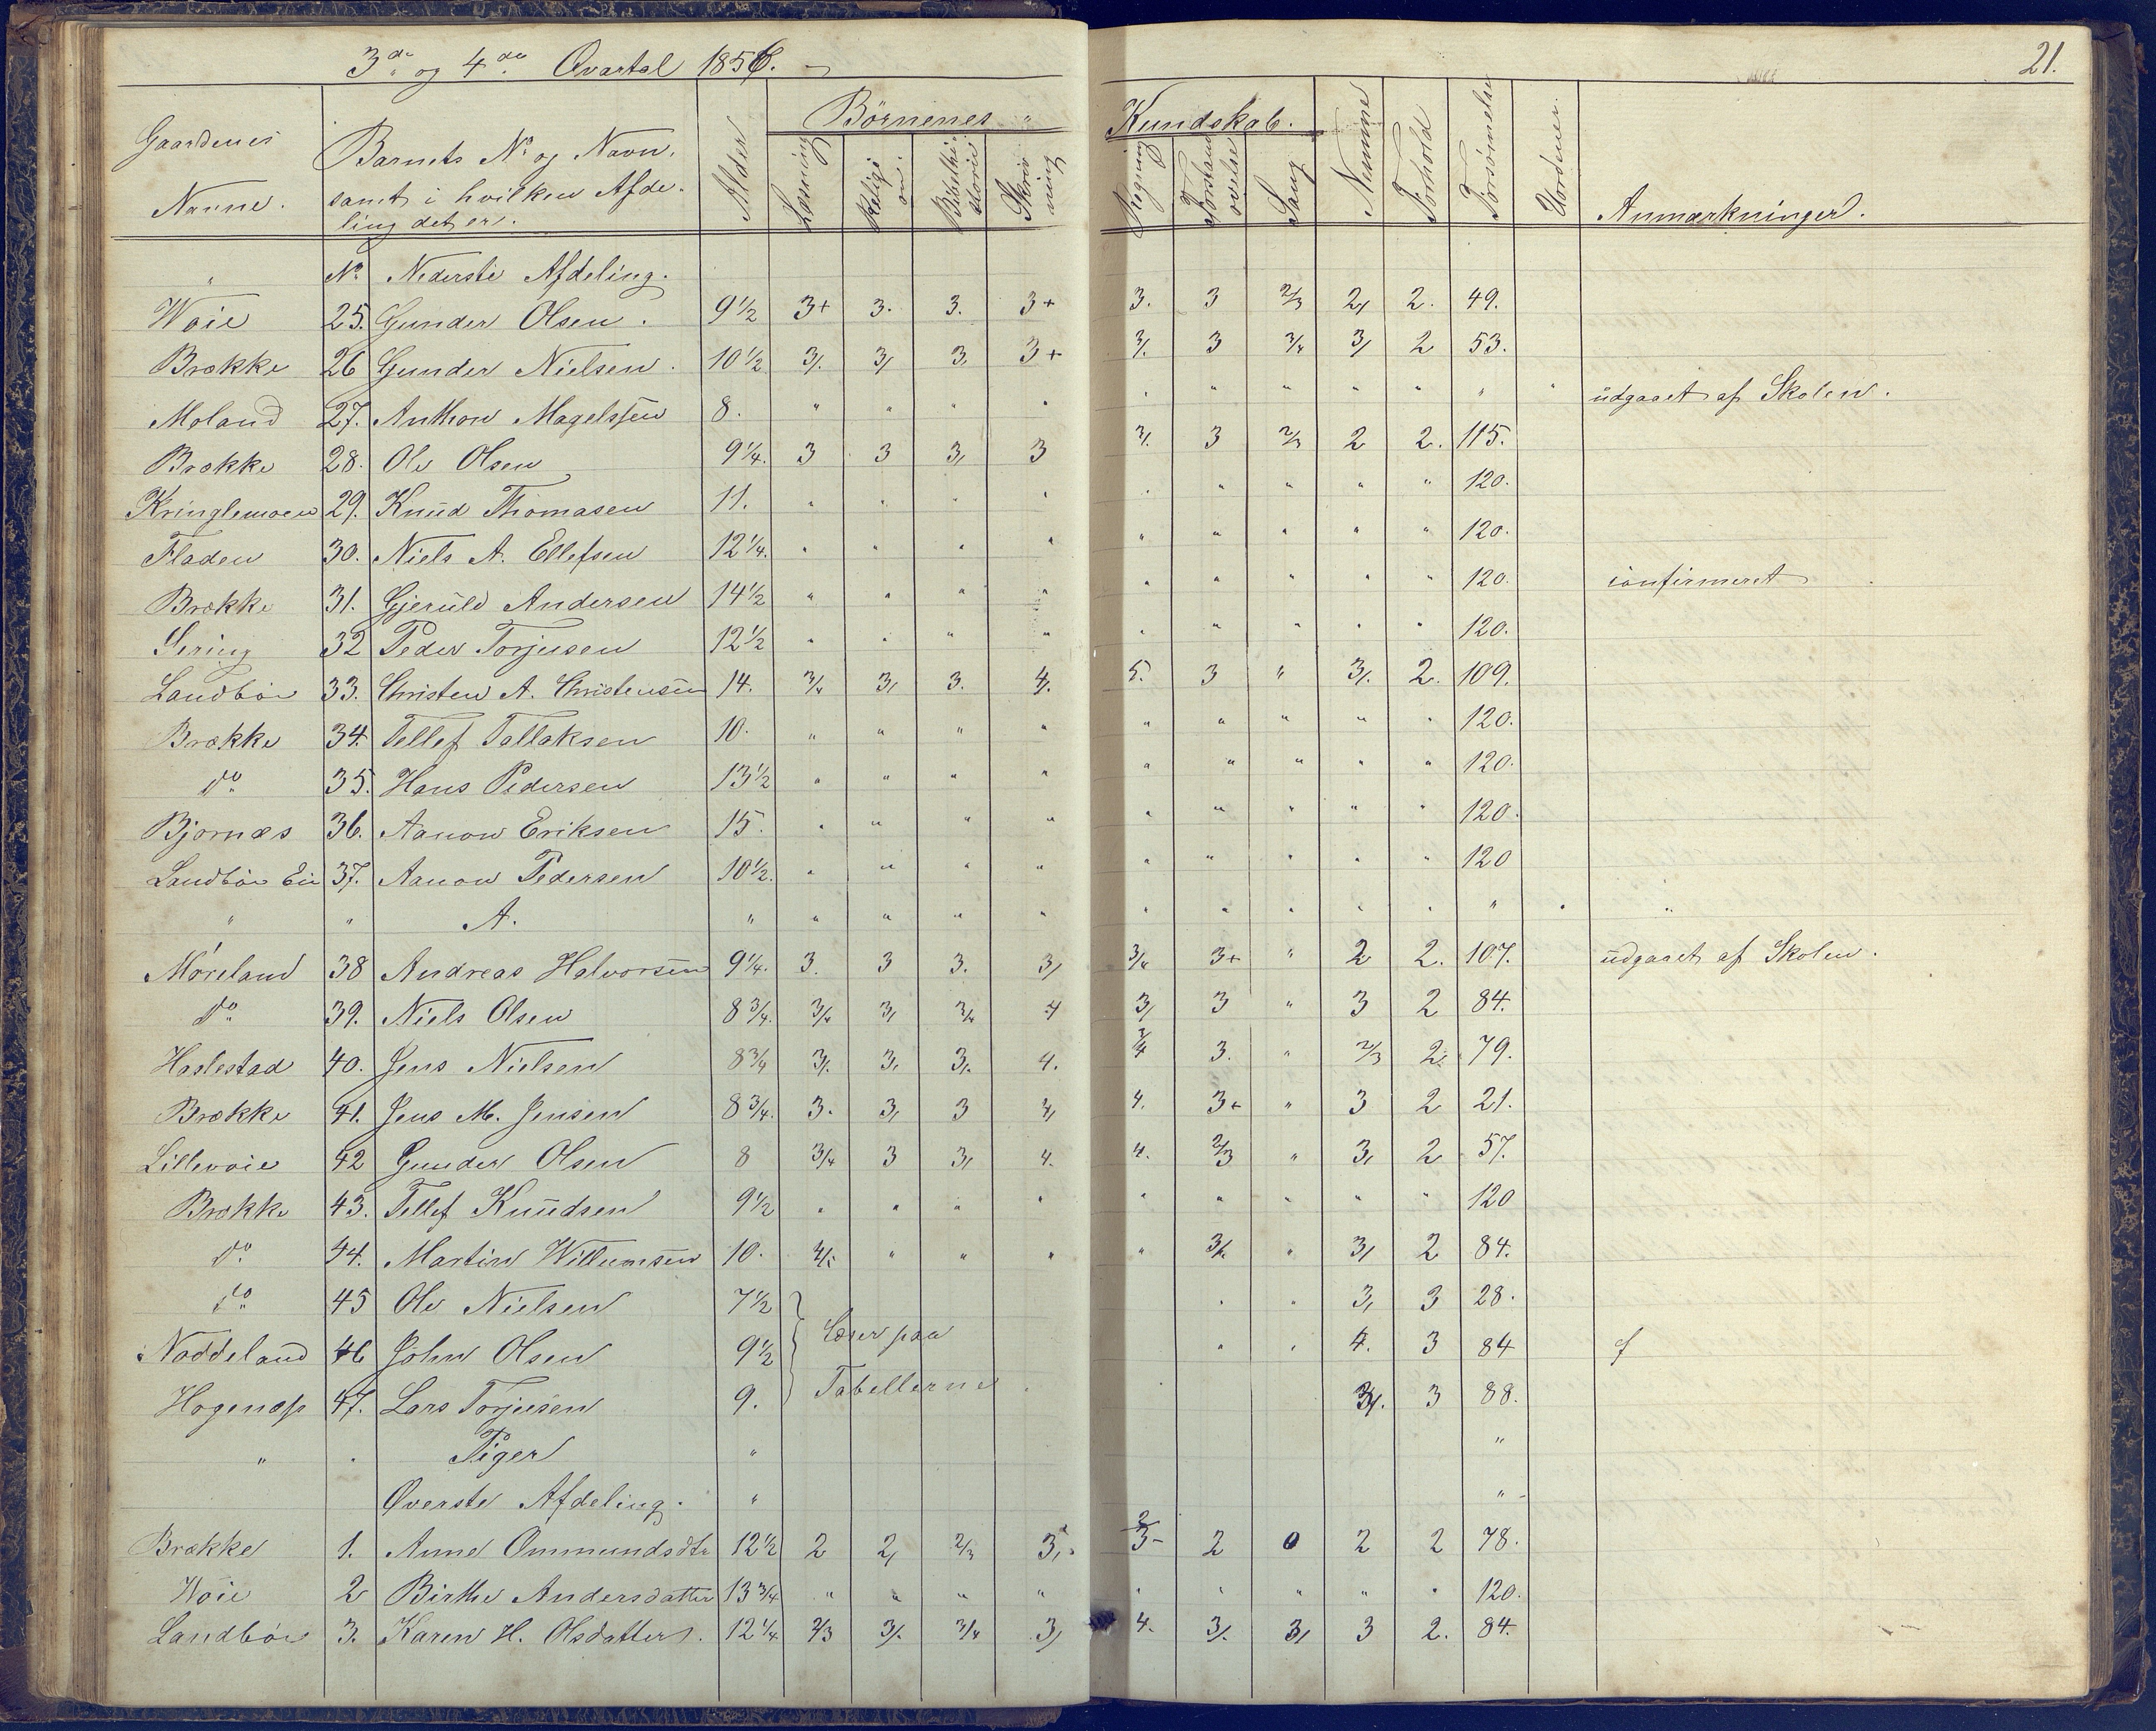 3de og 4de Qvartal 1856.
21.
Gaardenes Navne. Barnets No og Navn, samt i hvilken Afdeling det er. Alder Børnenes Læsning Religion Bibelhistorie Skrivning Kundskab. Regning Forstandsøvelse Sang Nemme Forhold Forsømmelse Uordener. Anmærkninger.
" No Nederste Afdeling.
Woie 25. Gunder Olsen. 9 1/2 3+ 3. 3. 3+ 3. 3 2/3 2/ 2. 49.
Brække 26 Gunder Nielsen. 10 1/2 3/. 3/ 3. 3+ 3/. 3 3/4 3/ 2 53.
Moland 27. Anthon Magelssen 8. " " " " " " " " " " " üdgaaet af Skolen.
Brække 28. Ole Olsen 9 1/4. 3 3 3/ 3 3/. 3 2/3 2 2. 115.
Kringlemoen 29. Knüd Thomasen 11. " " " " " " " " " 120.
Fladen 30. Niels A. Ellefsen 12 1/4. " " " " " " " " " 120.
Brække 31. Gjerüld Andersen 14 1/2 " " " " " " " " " 120. confirmeret
Sering 32 Peder Torjusen 12 1/2 " " " " " " " " " 120.
Landbör 33. Christen A. Christensen 14. 3/4 3/ 3. 4/. 5. 3 " 3/. 2. 109.
Brække 34. Tellef Tallaksen 10. " " " " " " " " " 120.
do 35. Hans Pedersen 13 1/2 " " " " " " " " " 120.
Bjornæs 36. Aanon Eriksen 15. " " " " " " " " " 120.
Landbör Ei 37. Aanon Pedersen 10 1/2. " " " " " " " " " 120
" " A. " " " " " " " " " " " " "
Möreland 38 Andreas Halvorsen 9 1/4. 3. 3 3. 3/ 3/4 3+ " 2 2. 107. üdgaaet af Skolen.
do 39. Niels Olsen 8 3/4. 3/4 3/ 3/4 4 3/ 3 " 3 2 84.
Haslestad 40. Jens Nielsen 8 3/4 3/. 3/ 3/. 4. 3/4 3. " 2/3 2. 79.
Brække 41. Jens M. Jensen 8 3/4. 3. 3/ 3 4/ 4. 3+ " 3 2 21.
Lillevoie 42 Gunder Olsen 8 3/4 3 3/ 4. 4. 2/3 " 3/ 2 57.
Brække 43. Tellef Knüdsen 9 1/2 " " " " " " " " " 120
do 44. Martin Willumsen 10. 4/. " " " " 3/4 " 3/ 2 84.
do 45 Ole Nielsen 7 1/2 " " 3/ 3 28.
Noddeland 46 John Olsen 9 1/2 Læser paa " " 4. 3 84
Hogenæss 47. Lars Torjüsen 9. Tabellerne. 3/. 3 88.
" " Piger " "
Øverste Afdeling. " "
Brække 1. Anne Ommundsdtr 12 1/2 2 2/ 2/3 3/. 2/3- 2 0 2 2 78.
Woie 2 Birthe Andersdatter 13 3/4 " " " " " " " " " 120.
Landbör 3. Karen H. Olsdatter. 12 1/4 2/3 3/. 3/4 3/ 4. 3/. 3/ 3 2. 84.